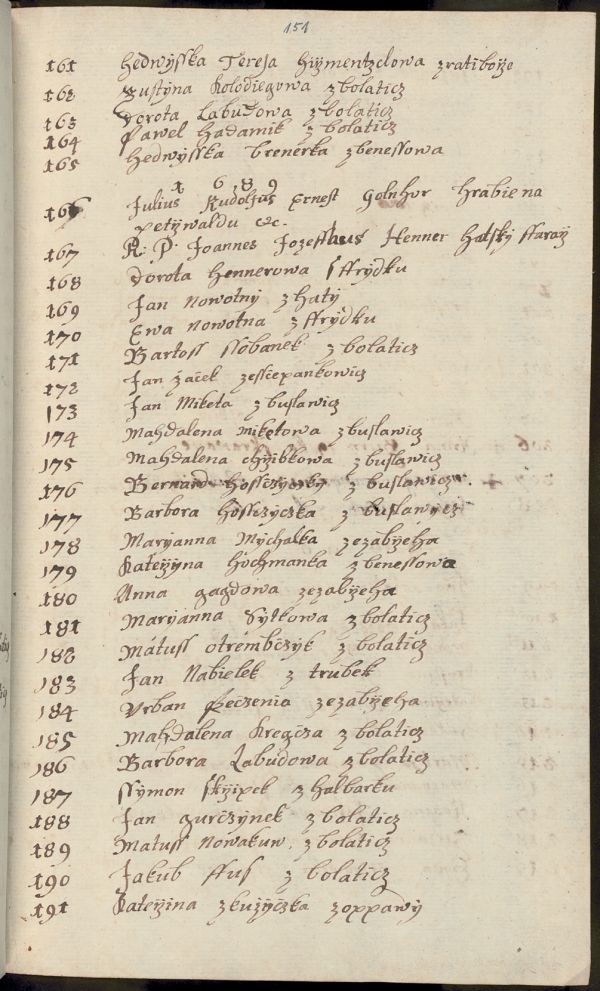 151
161 hedwÿsska Tereja hiÿmentzlowa zratiboÿze
162 Zustÿna Kolodiegowa zbolaticz
163 Dorota Labudowa zbolaticz
164 Pawel hadamik z bolaticz
165 hedwÿsska brenerka zbenessowa
1 6 8 9
166 Julius Rudolfus Ernest Golnhor hrabie na
petÿwaldu &c.
167 R. P. Joannes Jozeffhus Henner hatskÿ ffaraÿ
168 Dorota hennerowa sffrÿdku
169 Jan Nowotnÿ zhatÿ
170 Ewa Nowotna zffrÿdku
171 Bartoss slobanek z bolaticz
172 Jan żaček zessczepankowicz
173 Jan Miketa zbuslawicz
174 Mahdalena miketowa zbuslawicz
175 Mahdalena chÿibkowa zbuslawicz
176 Bernard z buslawicz
177 Barbora hossczÿczka z buslawicz
178 Marÿanna Mÿchalka zezabÿzeha
179 Kateÿÿna huchmanka zbenessowa
180 Anna gagdowa zezabÿzeha
181 Marÿanna Sÿtkowa zbolaticz
182 Mátuss otrembczÿk z bolaticz
183 Jan Nabielek z trubek
184 Vrban Peczenia zezabÿzeha
185 Mahdalena Kregcza zbolaticz
186 Barbora Labudowa zbolaticz
187 ssÿmon skÿipek zhalbarku
188 Jan gurczÿnek zbolaticz
189 Matuss Nowakuw. zbolaticz
190 Jakub ffus z bolaticz
191 Kateÿzina zkuÿzÿczka zoppawÿ